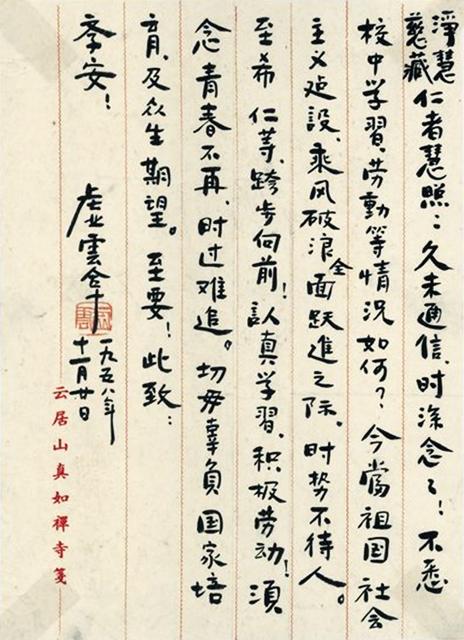 淨慧
慈藏
仁者慧照：久未通信，时深念々！不悉
校中学習、劳動等情况如何？今當祖国社会
主义建設、乘风破浪全面跃進之际，时势不待人。
至希 仁等、跨步向前！認真学習、积极劳动！須
念青春不再，时过难追。切毋辜負国家培
育，及众生期望。至要！此致：
季安！
虚雲合十
一九五八年
十一月廿日
云居山真如禪寺箋